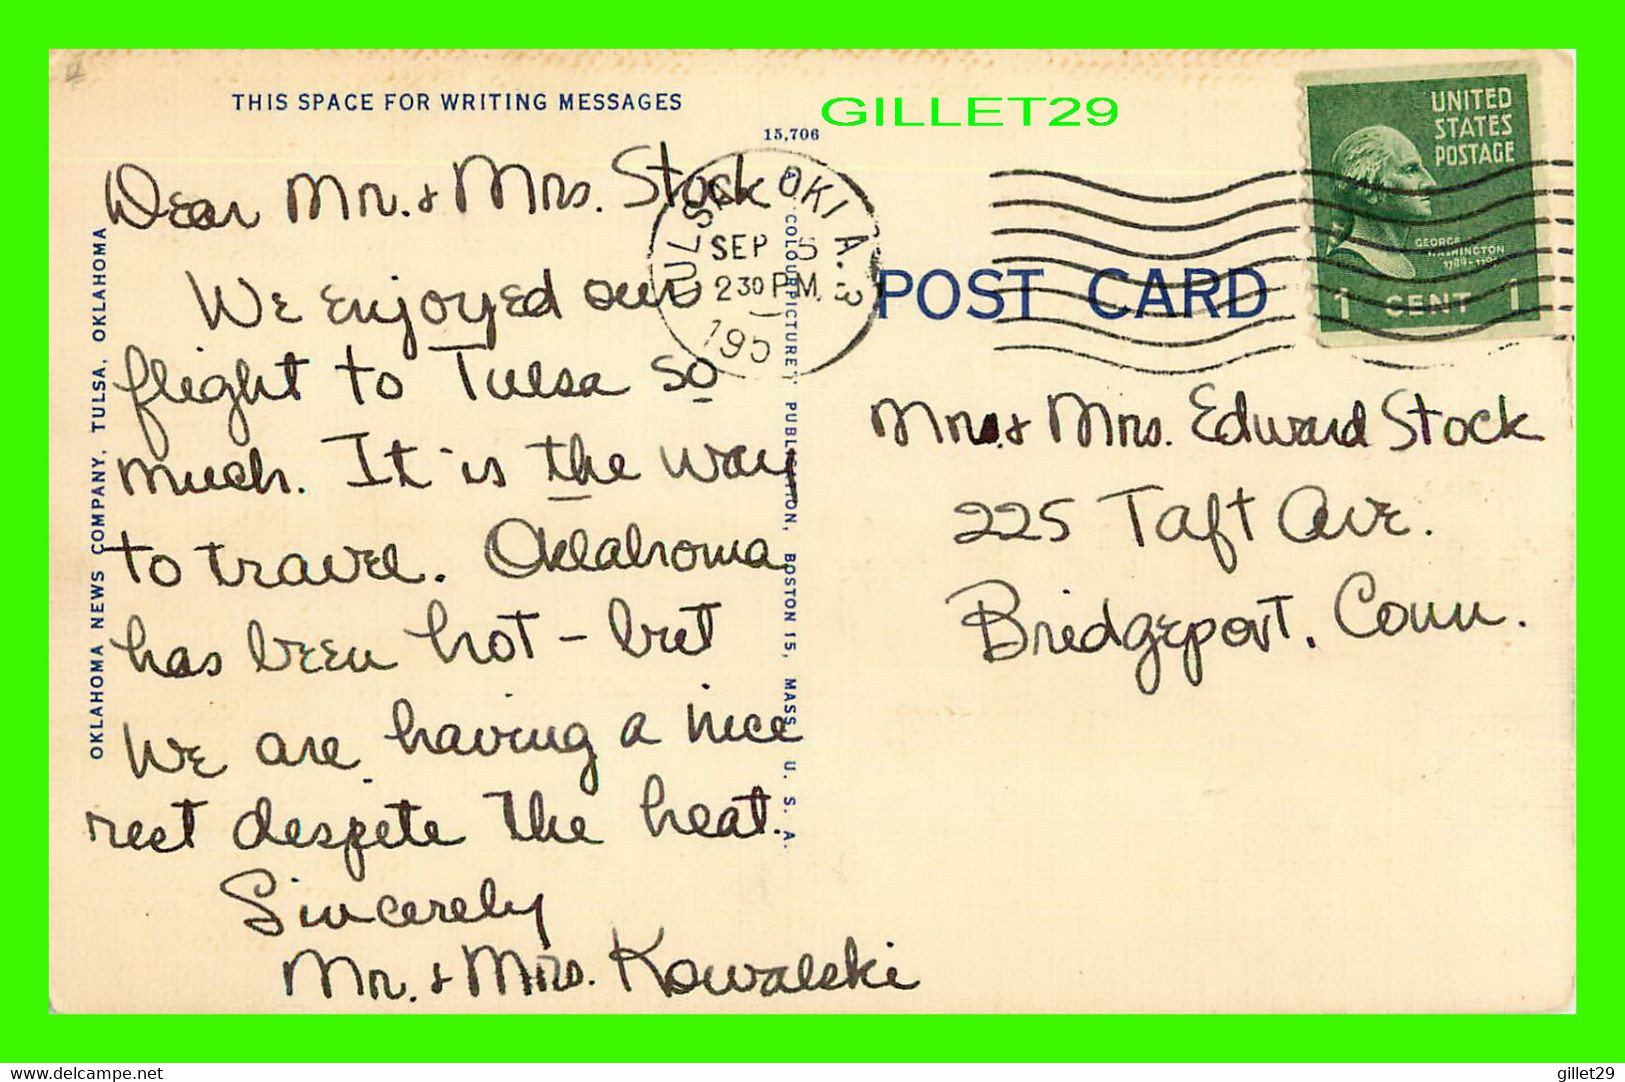 THIS SPACE FOR WRITING MESSAGES
GILLET29
15,706
Dear Mr. & Mrs. Stock
We enjoyed our
flight to Tulsa so
much. It is the way
to travel. Oklahoma
has been hot – but
we are having a nice
rest despite the heat.
Sincerely
Mr. & Mrs. Kowalski
OKLAHOMA NEWS COMPANY, TULSA, OKLAHOMA
COLOURPICTURE PUBLICATION, BOSTON 15, MASS., U. S. A.
TULSA, OKLA. 3
SEP 5
2 30 P.M.
195
POST CARD
UNITED
STATES
POSTAGE
GEORGE
WASHINGTON
1 CENT 1
Mr. & Mrs. Edward Stock
225 Taft Ave.
Bridgeport, Conn.
delcampe.net
gillet29